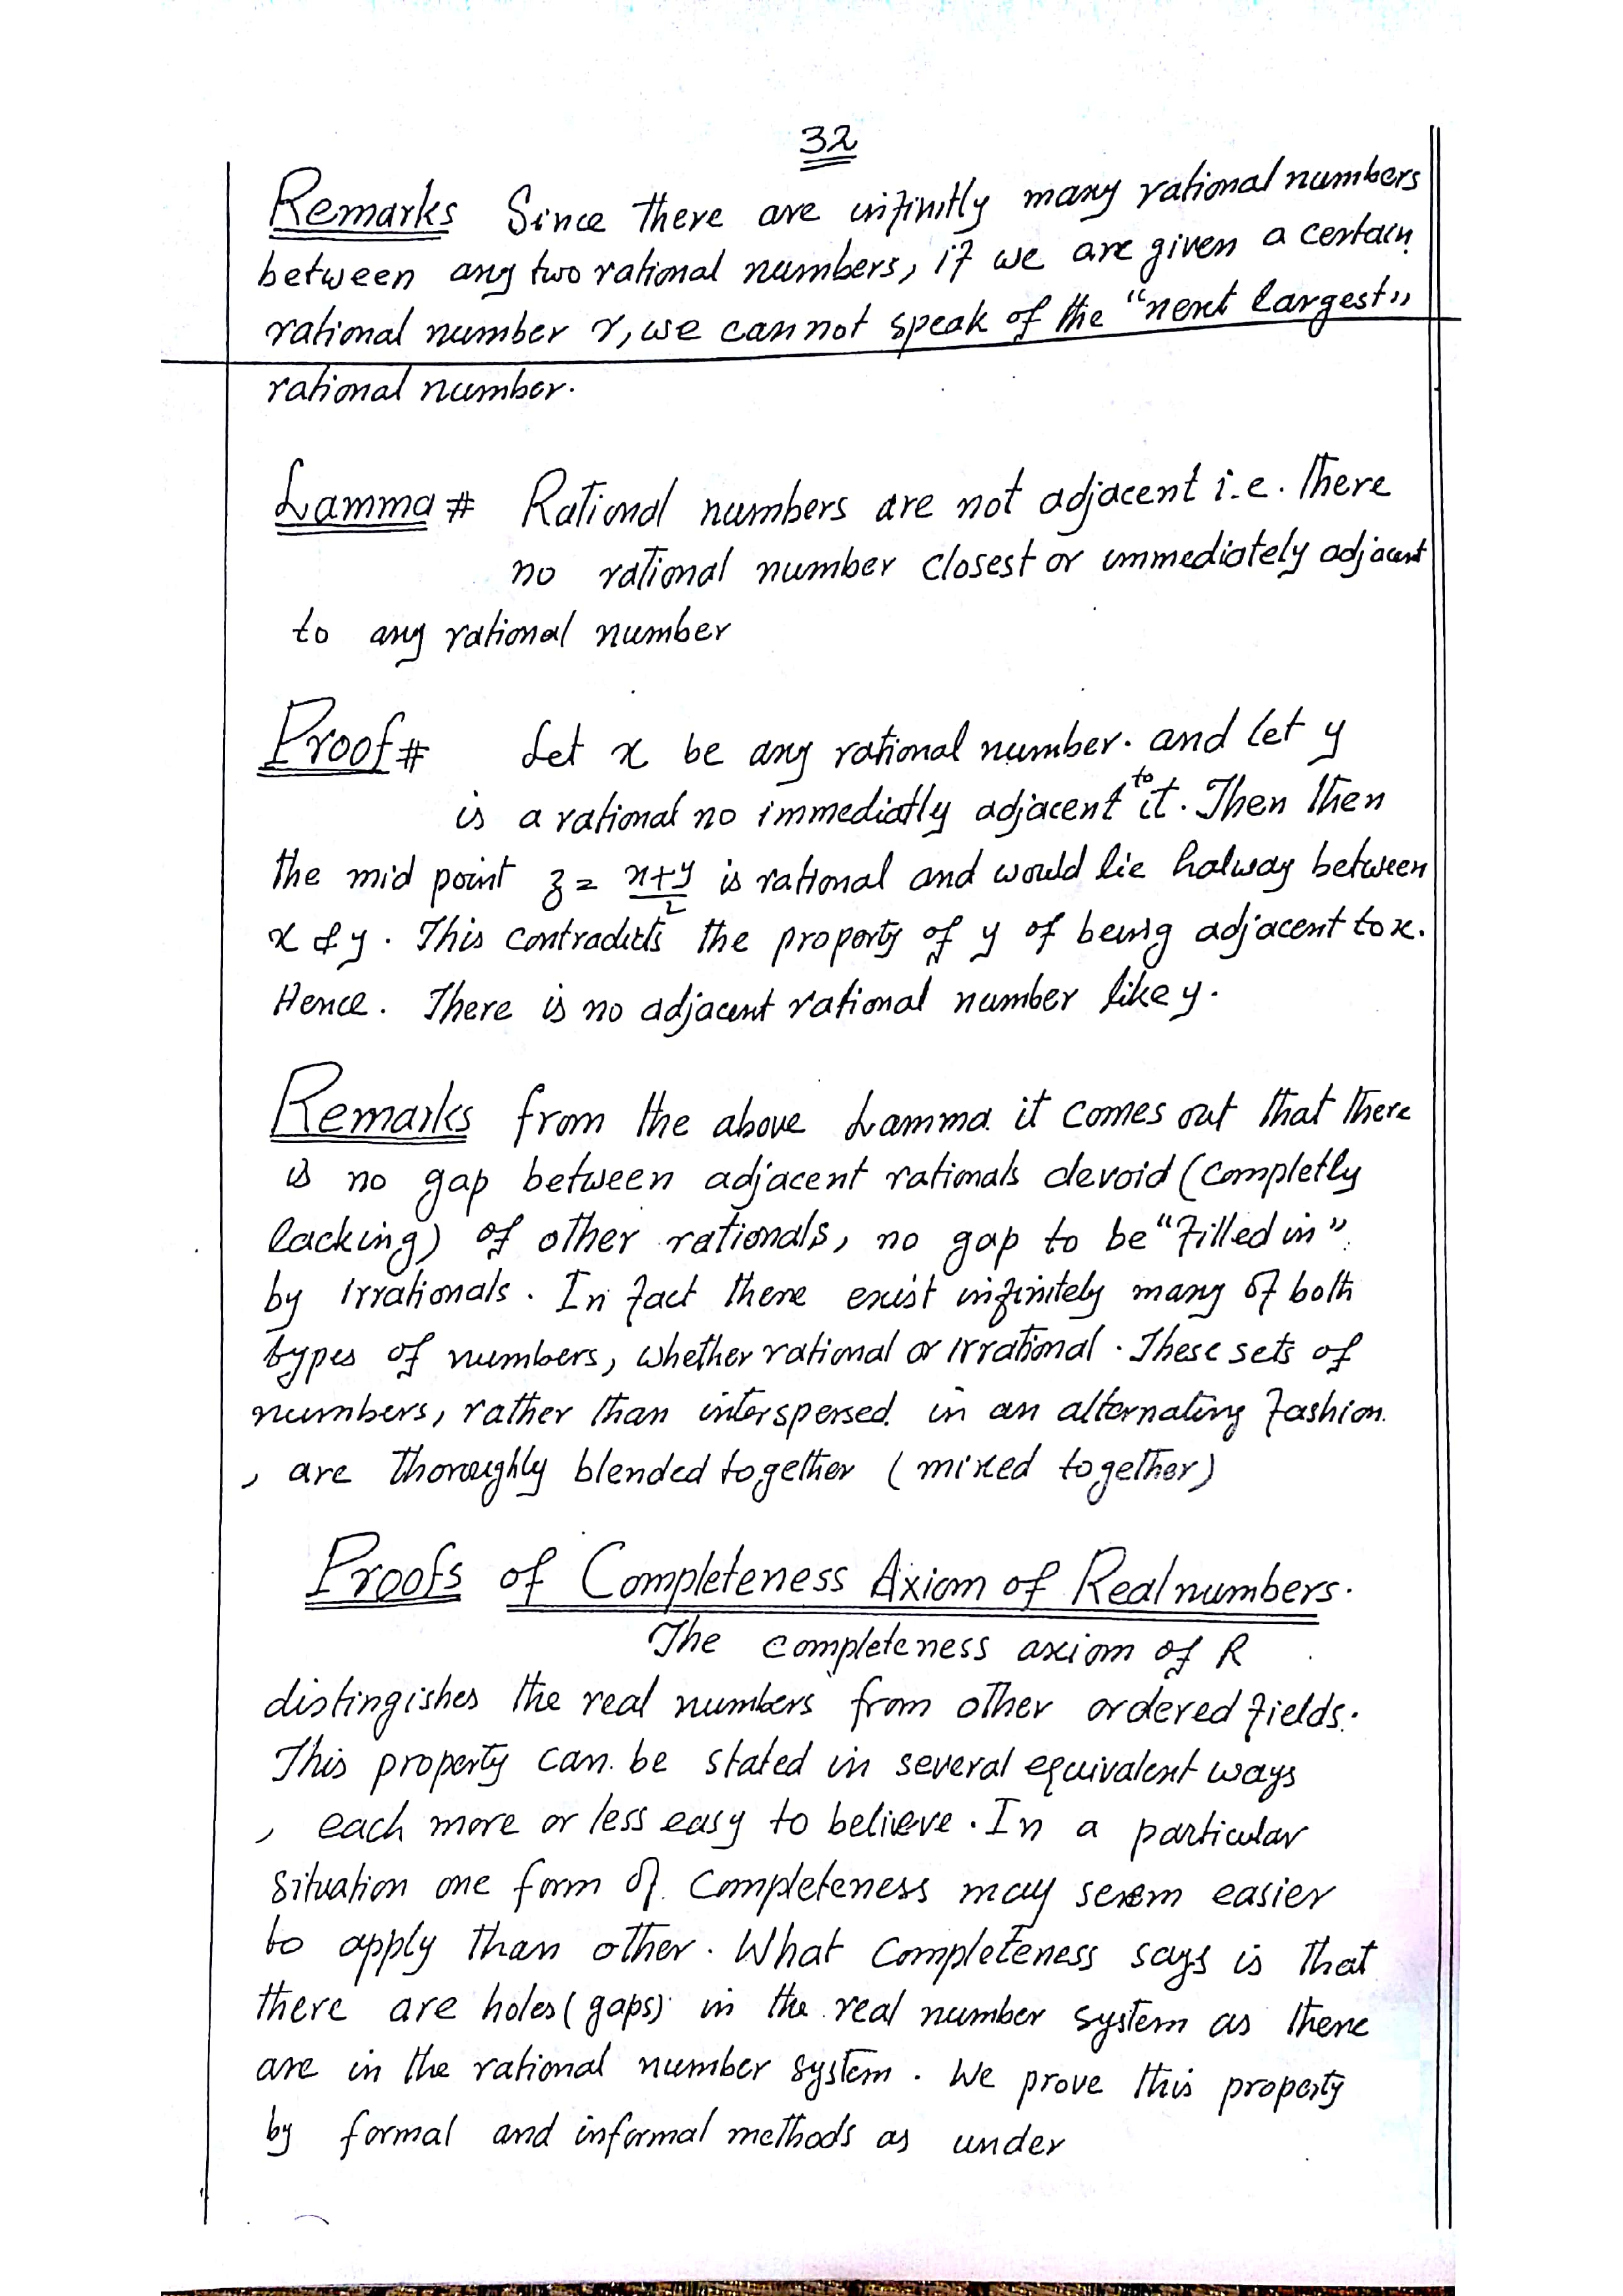 32
Remarks Since there are infinitly many rational numbers
between any two rational numbers, if we are given a certain
rational number r, we cannot speak of the "next largest"
rational number.
Lamma # Rational numbers are not adjacent i.e. there
no rational number closest or immediately adjacent
to any rational number
Proof # Let x be any rational number. and let y
is a rational no immediatly adjacent to it. Then then
the mid point z = x+y/2 is rational and would lie halway between
x & y. This contradicts the property of y of being adjacent to x.
Hence. There is no adjacent rational number like y.
Remarks from the above Lamma it comes out that there
is no gap between adjacent rationals devoid (completly
lacking) of other rationals, no gap to be "filled in"
by irrationals. In fact there exist infinitely many of both
types of numbers, whether rational or irrational. These sets of
numbers, rather than interspersed in an alternating fashion.
, are thoroughly blended together (mixed together)
Proofs of Completeness Axiom of Real numbers.
The completeness axiom of R
distingishes the real numbers from other ordered fields.
This property can be stated in several equivalent ways
, each more or less easy to believe. In a particular
situation one form of completeness may seem easier
to apply than other. What completeness says is that
there are holes (gaps) in the real number system as there
are in the rational number system. We prove this property
by formal and informal methods as under